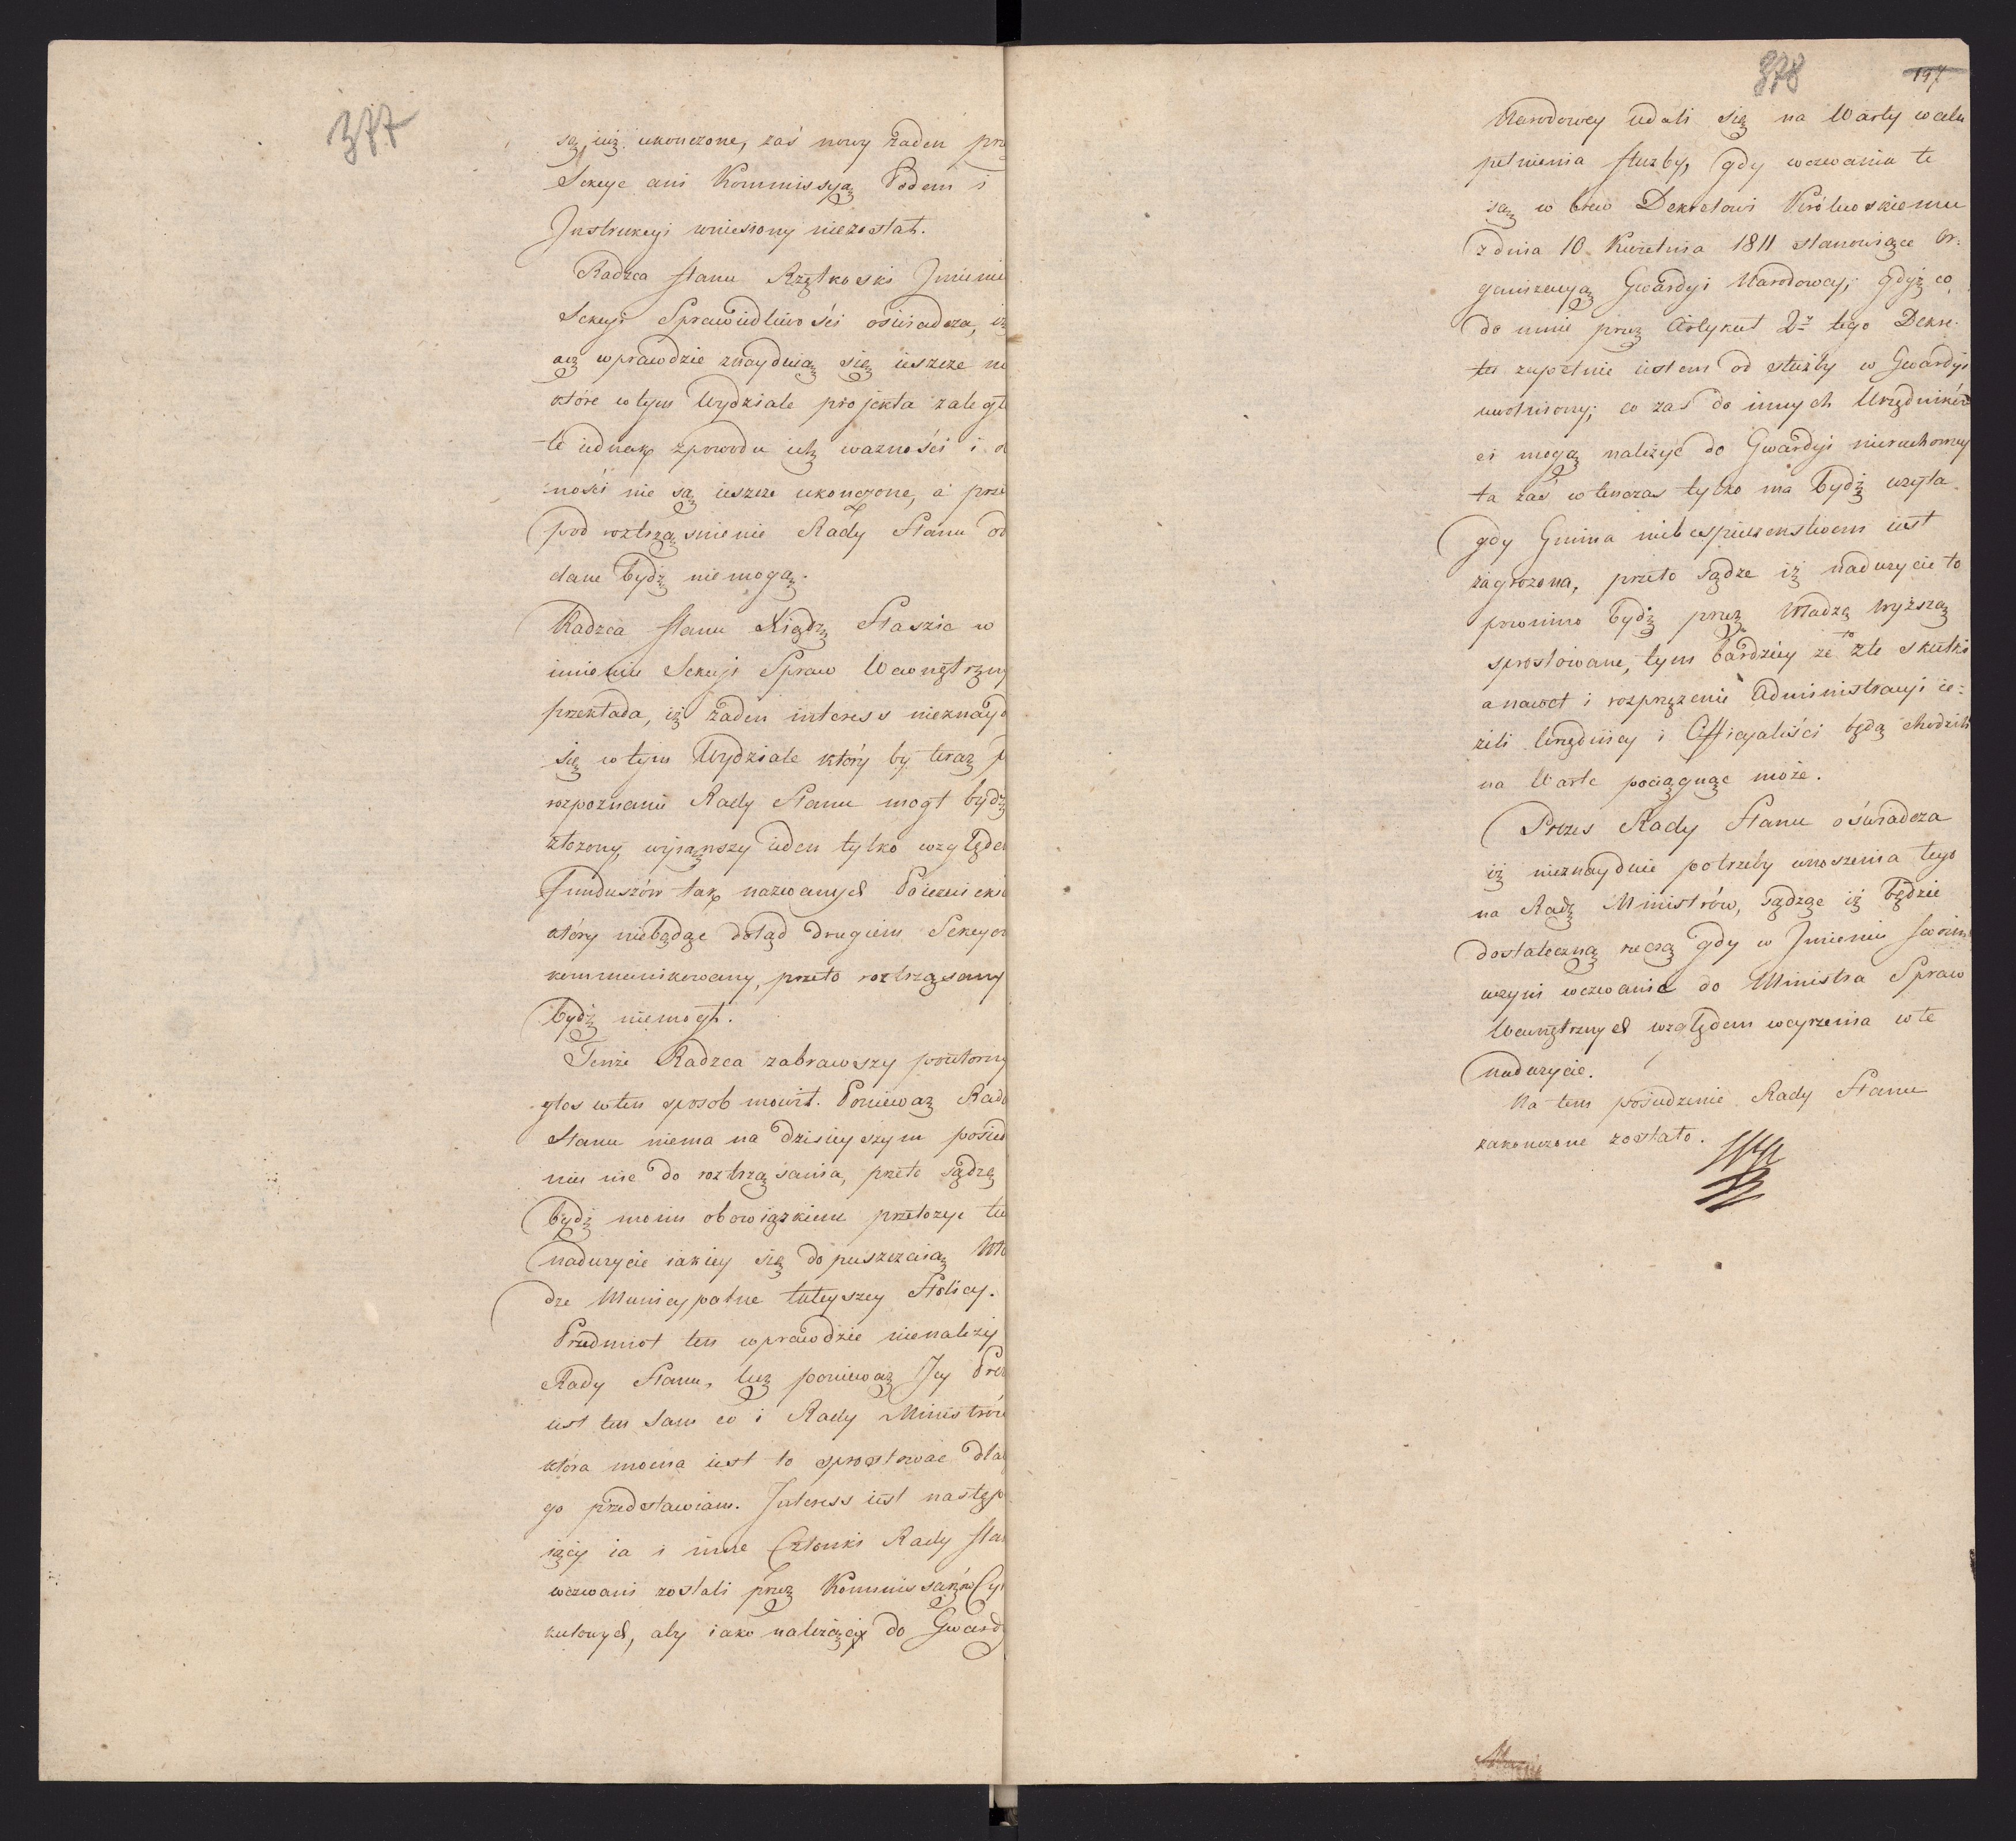 377
są iuż ukończone, zaś nowy żaden pro
Sekcye ani Kommissyą Podem i
Instrukcyi wniesiony niezostał.
Radzca stanu Rzętkoski Jmieniem
Sekcyi Sprawiedliwości oświadcza, iż
acz wprawdzie znayduią się ieszcze nie
które wtym Wydziale projekta zaległe
te iednak zpowodu ich ważności i o
:ności nie są ieszcze ukończone, a prze
pod roztrząśnienie Rady Stanu od
dane bydź niemogą.
Radzca stanu Xiądz Staszic w
imieniu Sekcyi Spraw Wewnętrzny
przekłada, iż żaden interess nieznayd
się wtym Wydziale który by teraz p
rozpoznaniu Rady Stanu mogł bydź
złożony, wyiąwszy ieden tylko względem
Funduszów tak nazwanych Poiezuickich
który niebądąc dotąd drugiem Sekcyom
kommunikowany, przeto roztrząsany
bydź niemogł.
Tenże Radzca zabrawszy powtorny
głos wten sposob mówił. Ponieważ Rada
Stanu niema na dzisieyszym posied
niu nic do roztrząsania, przeto sądzę
bydź moim obowiązkiem przełożyć tu
nadużycie iakiey się dopuszczaią Wła
dze Municypalne tuteyszey Stolicy.
Przedmiot ten wprawdzie nienależy
Rady Stanu, lecz ponieważ Jey Prez
iest ten sam co i Rady Ministrów
która mocna iest to sprostować dla
go przedstawiam. Interess iest następ
iący ia i inne Członki Rady Sta
wezwani zostali przez Kommissarzów Cyr
kułowych, aby iako należący do Gwardy
378
197
Narodowey udali się na Warty wcelu
pełnienia służby, gdy wezwania te
są w brew Dekretowi Królewskiemu
zdnia 10. Kwietnia 1811 stanowiące Or:
ganizacyą Gwardyi Narodowey; gdyż co
do mnie przez Artykuł 2.gi tego Dekre:
tu zupełnie iestem od służby w Gwardyi
uwolniony; co zaś do innych Urzędników
ci mogą należyć do Gwardyi nieruchomey
ta zaś wtenczas tylko ma bydź użyta
gdy Gmina niebespieczenstwem iest
zagrożona, przeto sądze iż nadużycie to
powinno bydź przez Władzę Wyższą
sprostowane, tym bardziey że to złe skutki
a nawet i rozprzężenie Administracyi ie:
żeli Urzędnicy i Officyaliści będą chodzili
na Warte pociągnąć może.
Prezes Rady Stanu oświadcza
iż nieznayduie potrzeby wnoszenia tego
na Radę Ministrów, sądząc iż będzie
dostateczną rzeczą gdy w Jmieniu swoim
uczyni wezwanie do Ministra Spraw
Wewnętrznych względem weyrzenia w te
nadużycie.
Na tem posiedzenie Rady Stanu
zakończone zostało.